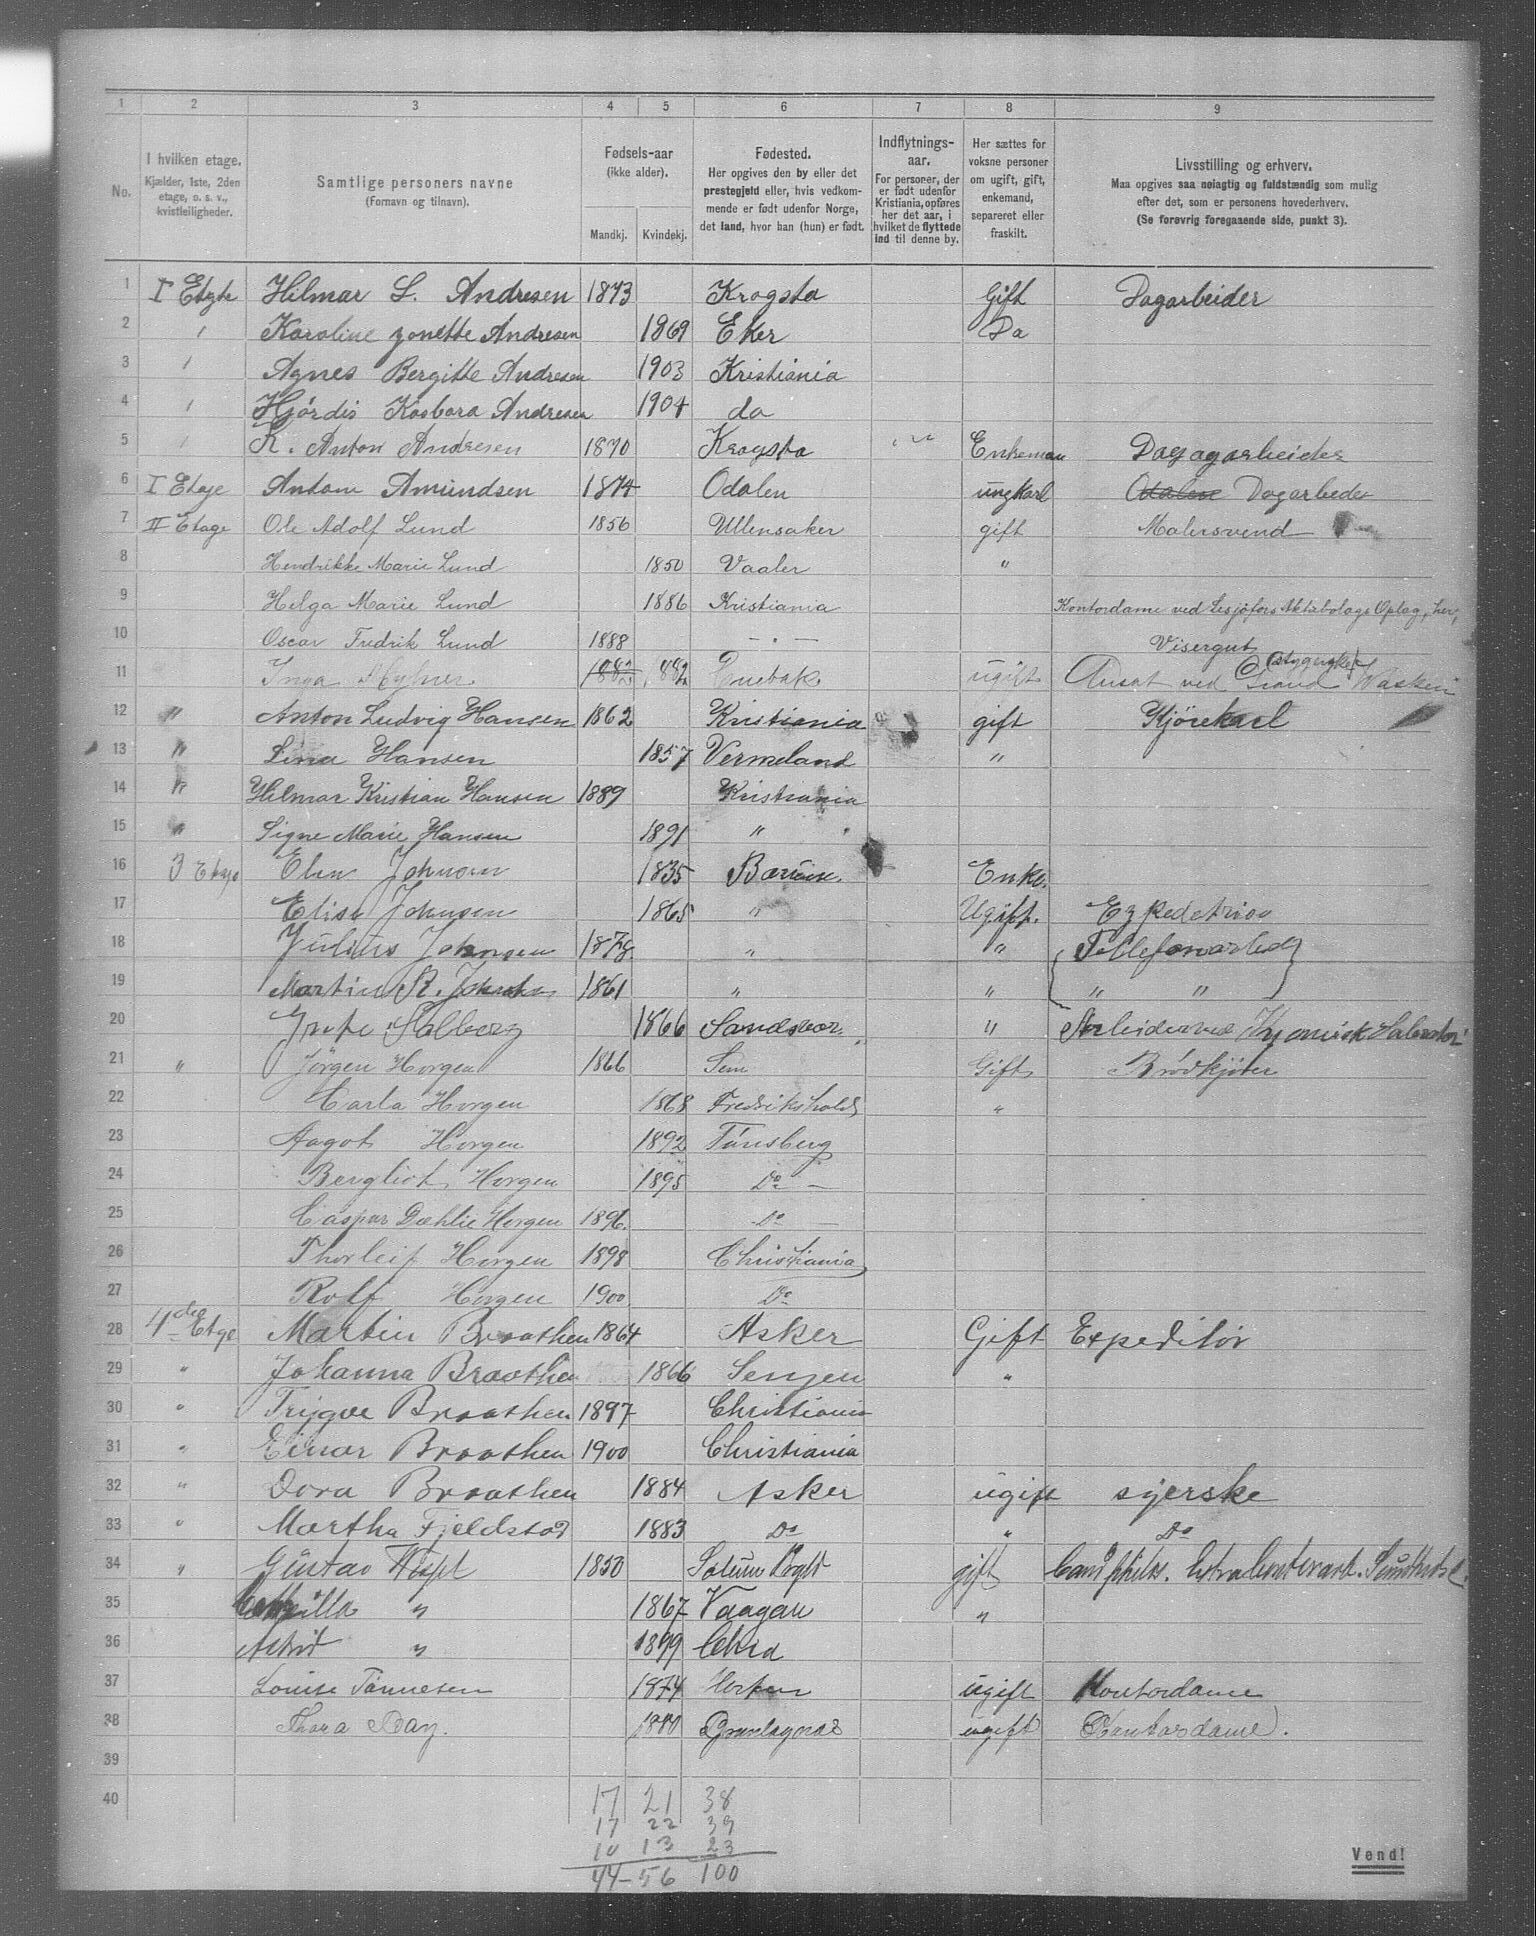 1 2 3 4 5 6 7 8 9
No.
I hvilken etage.
Kjælder, 1ste, 2den
etage, o. s. v.,
kvistleiligheder.
Samtlige personers navne
(Fornavn og tilnavn).
Fødsels-aar
(ikke alder).
Mandkj. Kvindekj.
Fødested.
Her opgives den by eller det
prestegjeld eller, hvis vedkom-
mende er født udenfor Norge,
det land, hvor han (hun) er født.
Indflytnings-
aar.
For personer, der
er født udenfor
Kristiania, opføres
her det aar, i
hvilket de flyttede
ind til denne by.
Her sættes for
voksne personer
om ugift, gift,
enkemand,
separeret eller
fraskilt.
Livsstilling og erhverv.
Maa opgives saa nøiagtig og fuldstændig som mulig
efter det, som er personens hovederhverv.
(Se forøvrig foregaaende side, punkt 3).
1 I Etage Hilmar L. Andresen 1873 Krogsta Gift Dagarbeider
2 " Karoline Andresen 1869 Eker Do
3 " Agnes Bergitte Andresen 1903 Kristiania
4 " Hjørdis Andresen 1904 do
5 " K. Anton Andresen 1870 Krogsta " Enkeman Dagagarbeider
6 I Etage Antom Amundsen 1874 Odalen ungkarl Odalen Dagarbeder
7 II Etage Ole Adolf Lund 1856 Ullensaker gift Malersvend
8 Hendrikke Marie Lund 1850 Vaaler "
9 Helga Marie Lund 1886 Kristiania Kontordame ved Lesjöfors Aktabolags Oplag, her,
10 Oscar Fredrik Lund 1888 — " — Visergut
11 Inga 1882 Enebak ugift Ansat ved Grand
12 " Anton Ludvig Hansen 1862 Kristiania gift Kjörekarl
13 " Lina Hansen 1857 Vermeland "
14 " Hilmar Kristian Hansen 1889 Kristiania
15 " Signe Marie Hansen 1891 "
16 3 Etage Elen Johnsen 1835 Bærum Enke.
17 Elise Johnsen 1865 " Ugift. Expedetrise
18 Julius Johnsen 1878 " " Tellefonarbeid
19 Martin R. Johnsen 1861 " " " "
20 Solberg 1866 Sandsvær " Arbeider ved
21 " Jörgen Horgen 1866 Sem Gift Brödkjörer
22 Carla Horgen 1868 Fredrikshald "
23 Aagot Horgen 1892 Tönsberg
24 Bergliot Horgen 1895 Do —
25 Caspar Dæhlie Horgen 1896. Do —
26 Thorleif Horgen 1898 Christiania
27 Rolf Horgen 1900 Do
28 4de Etge Martin Braathen 1864 Asker Gift Expeditør
29 " Johanna Braathen 1866 Senjen "
30 " Trygve Braathen 1897 Christiania
31 " Einar Braathen 1900 Christiania
32 " Dora Braathen 1884 Asker ugift syerske
33 " Martha Fjeldstad 1883 Do " Do
34 " Gustav 1850 Solum gift
35 " 1867 Vaagan "
36 Astrid " 1899 Chra
37 Louise Tönnesen 1874 Horten ugift Kontordame
38 Thora Day. 1880 ugift Kontordame.
39
40
17 21 38
17 22 39
10 13 23
44 - 56 100
Vend!